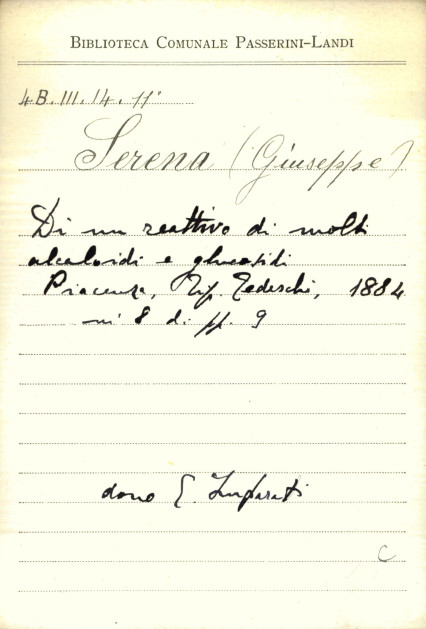 BIBLIOTECA COMUNALE PASSERINI-LANDI
4B.III.14.11°
Serena (Giuseppe)
Di un reattivo di molti
alcaloidi e glucosidi
Piacenza, Tip. Tedeschi, 1884
in 8 di pp. 9
dono E. Imparati
C